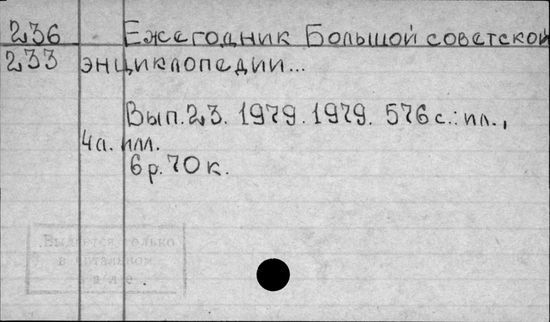 236 Ежегодник Большой советской
233 энциклопедии...
Вып.23. 1979. 1979. 576 с.: ил.,
4 л. илл.
6 р. 70 к.
Выдается только
в читальном